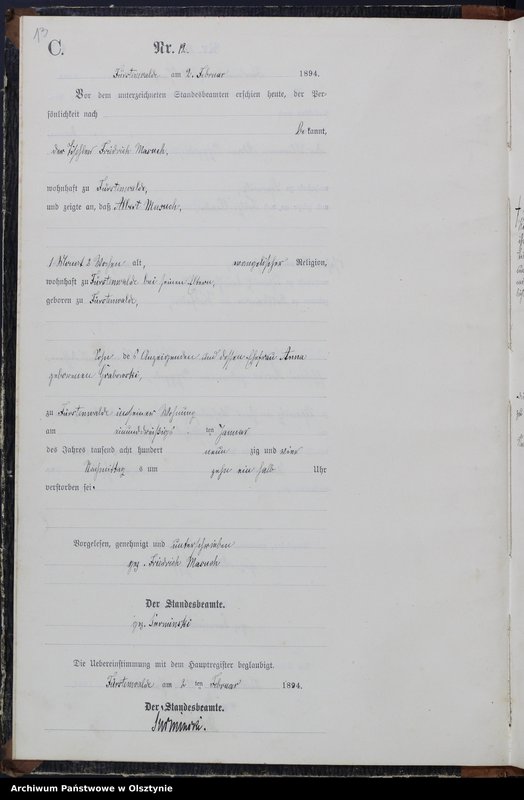 13
C.
Nr. 12.
Fürstenwalde am 2. Februar 1894.
Vor dem unterzeichneten Standesbeamten erschien heute, der Per-
sönlichkeit nach
Be kannt,
der Friedrich Maruch,
wohnhaft zu Fürstenwalde,
und zeigte an, daß Albert Maruch,
1 Monat 3 Wochen alt, evangelischer Religion,
wohnhaft zu Fürstenwalde bei seinen Eltern,
geboren zu Fürstenwalde,
Sohn des Anzeigenden und dessen Ehefrau Anna
geborenen Grabowski,
zu Fürstenwalde in seiner Wohnung
am einunddreißigs ten Januar
des Jahres tausend acht hundert neun zig und vier
Nachmittag s um zehn ein halb Uhr
verstorben sei.
Vorgelesen, genehmigt und unterschrieben
gez. Friedrich Maruch
Der Standesbeamte.
gez. Surminski
Die Uebereinstimmung mit dem Hauptregister beglaubigt.
Fürstenwalde am 2 ten Februar 1894.
Der Standesbeamte.
Surminski.
Archiwum Państwowe w Olsztynie